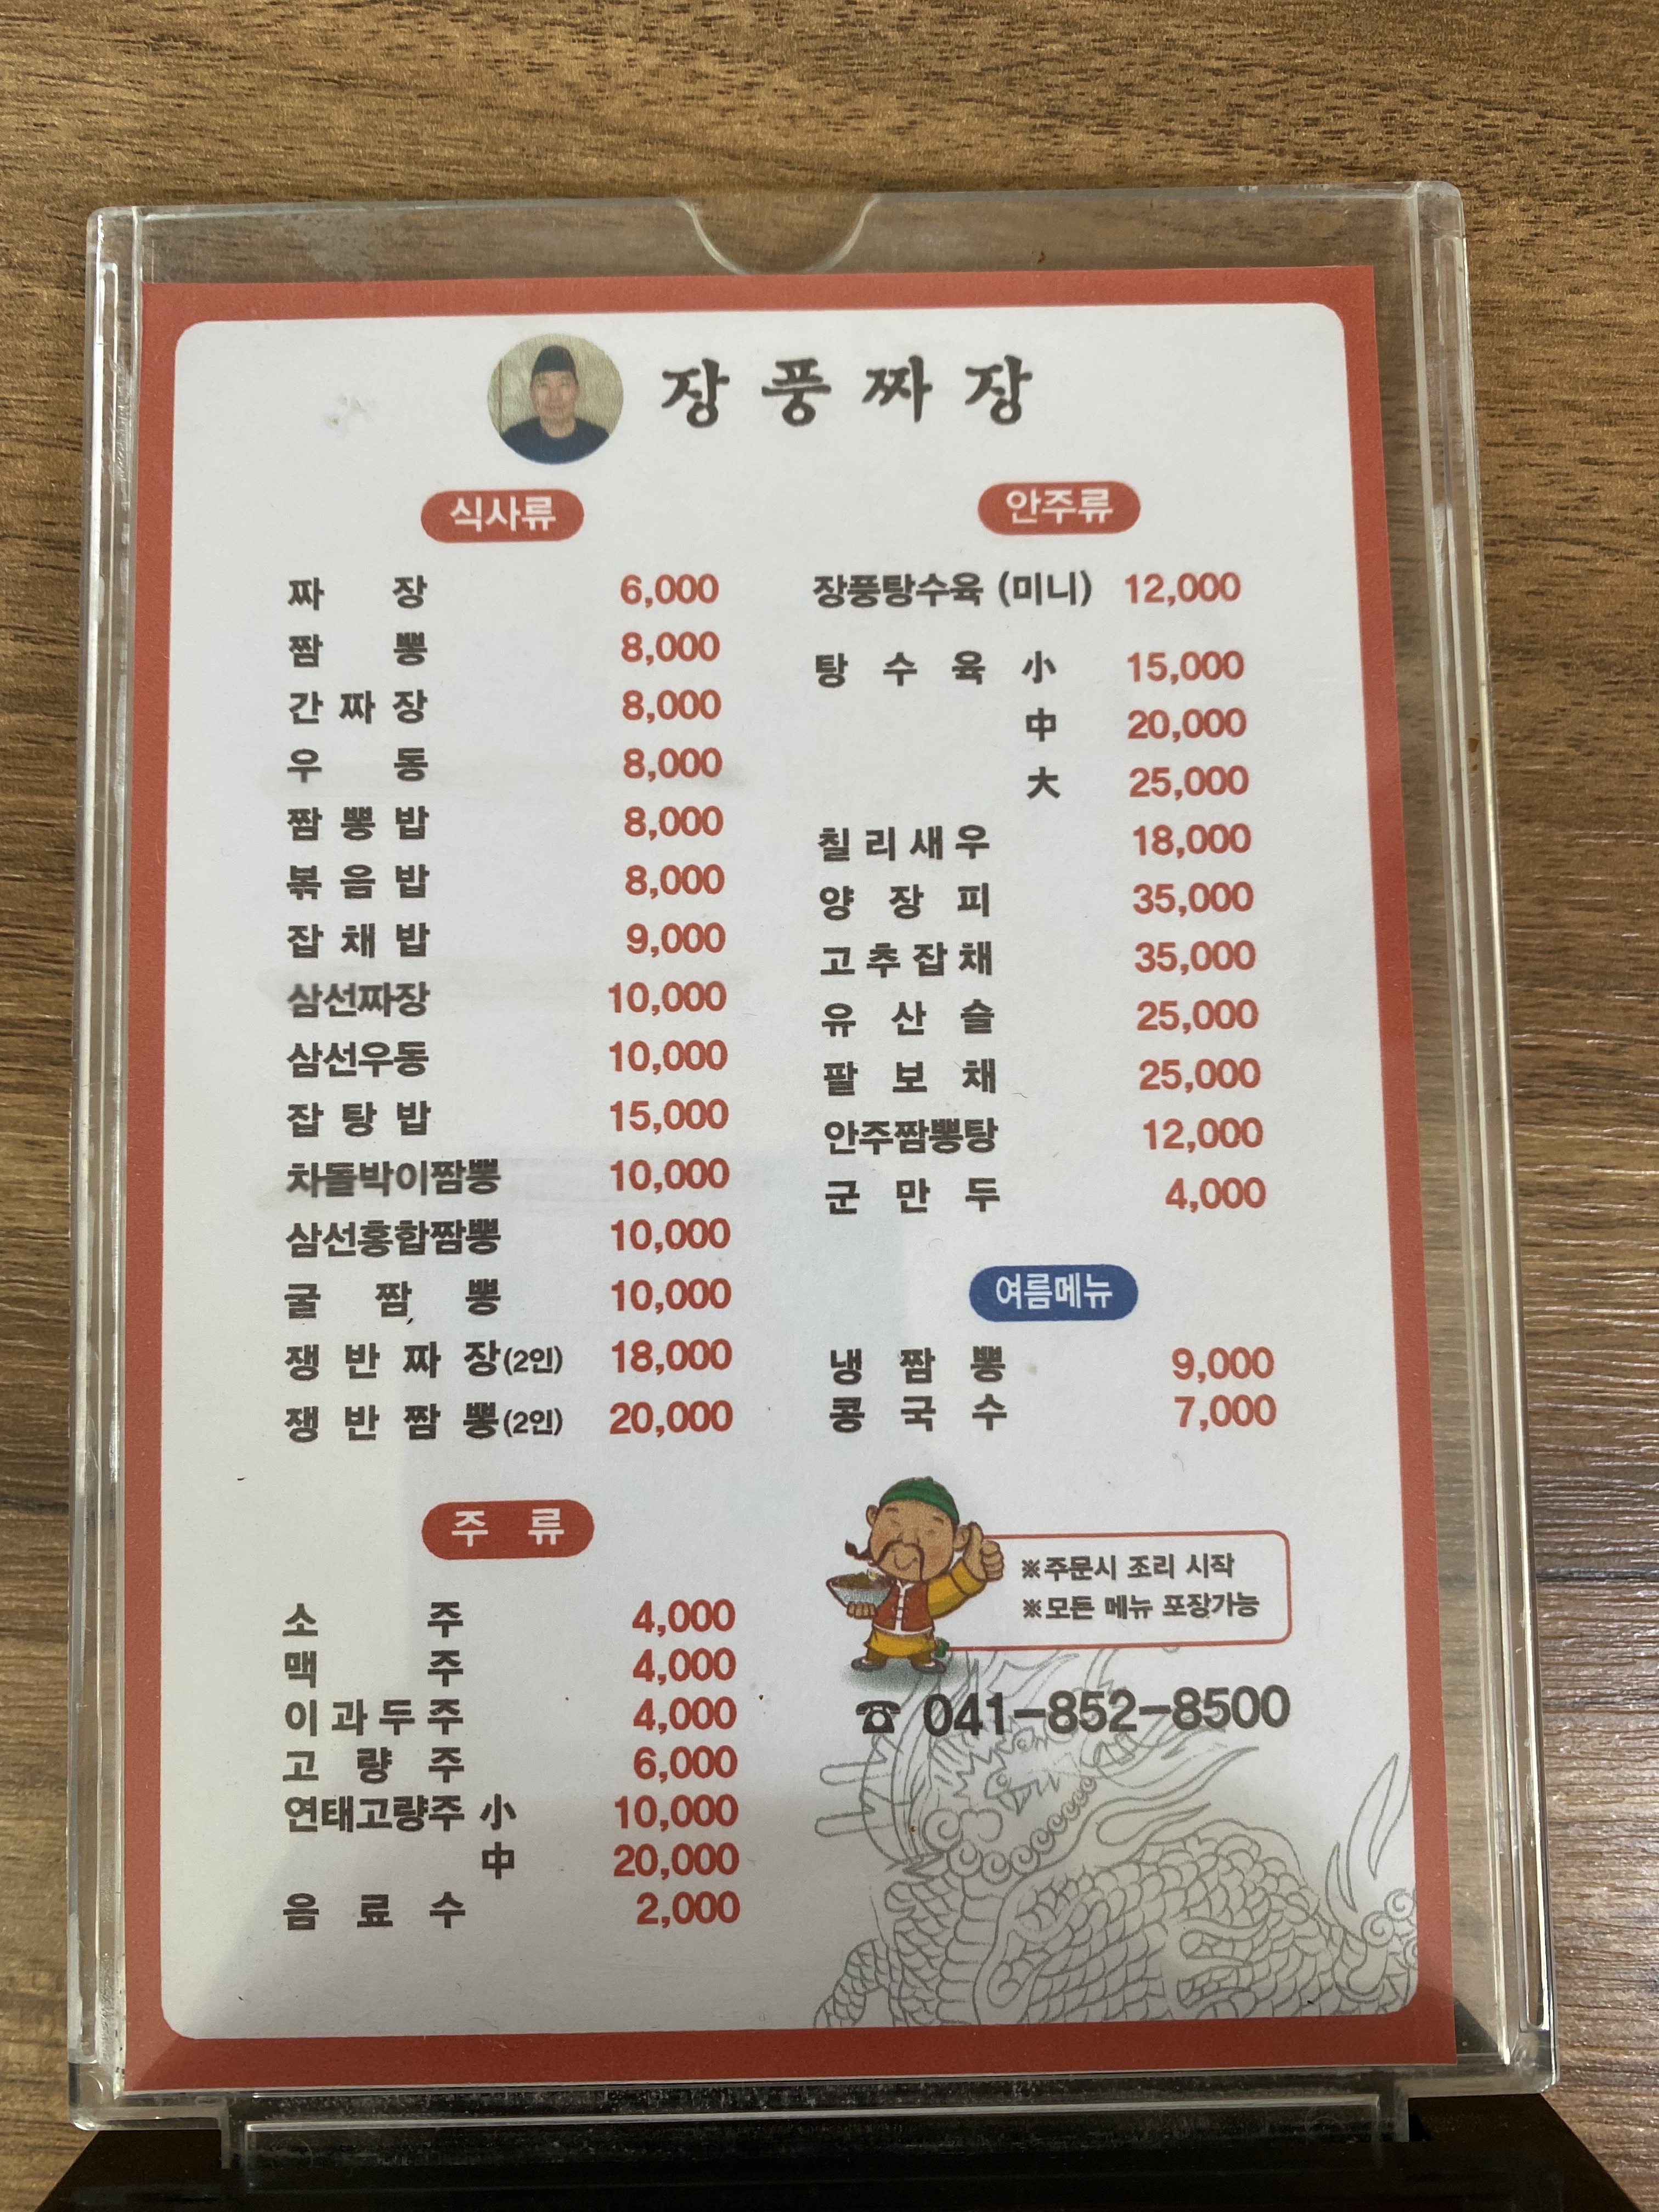 장풍짜장
식사류
짜장 6,000
짬뽕 8,000
간짜장 8,000
우동 8,000
짬뽕밥 8,000
볶음밥 8,000
잡채밥 9,000
삼선짜장 10,000
삼선우동 10,000
잡탕밥 15,000
차돌박이짬뽕 10,000
삼선홍합짬뽕 10,000
굴짬뽕 10,000
쟁반짜장(2인) 18,000
쟁반짬뽕(2인) 20,000
주류
소주 4,000
맥주 4,000
이과두주 4,000
고량주 6,000
연태고량주 小 10,000
中 20,000
음료수 2,000
안주류
장풍탕수육 (미니) 12,000
탕수육 小 15,000
中 20,000
大 25,000
칠리새우 18,000
양장피 35,000
고추잡채 35,000
유산슬 25,000
팔보채 25,000
안주짬뽕탕 12,000
군만두 4,000
여름메뉴
냉짬뽕 9,000
콩국수 7,000
※주문시 조리 시작
※모든 메뉴 포장가능
☎ 041-852-8500